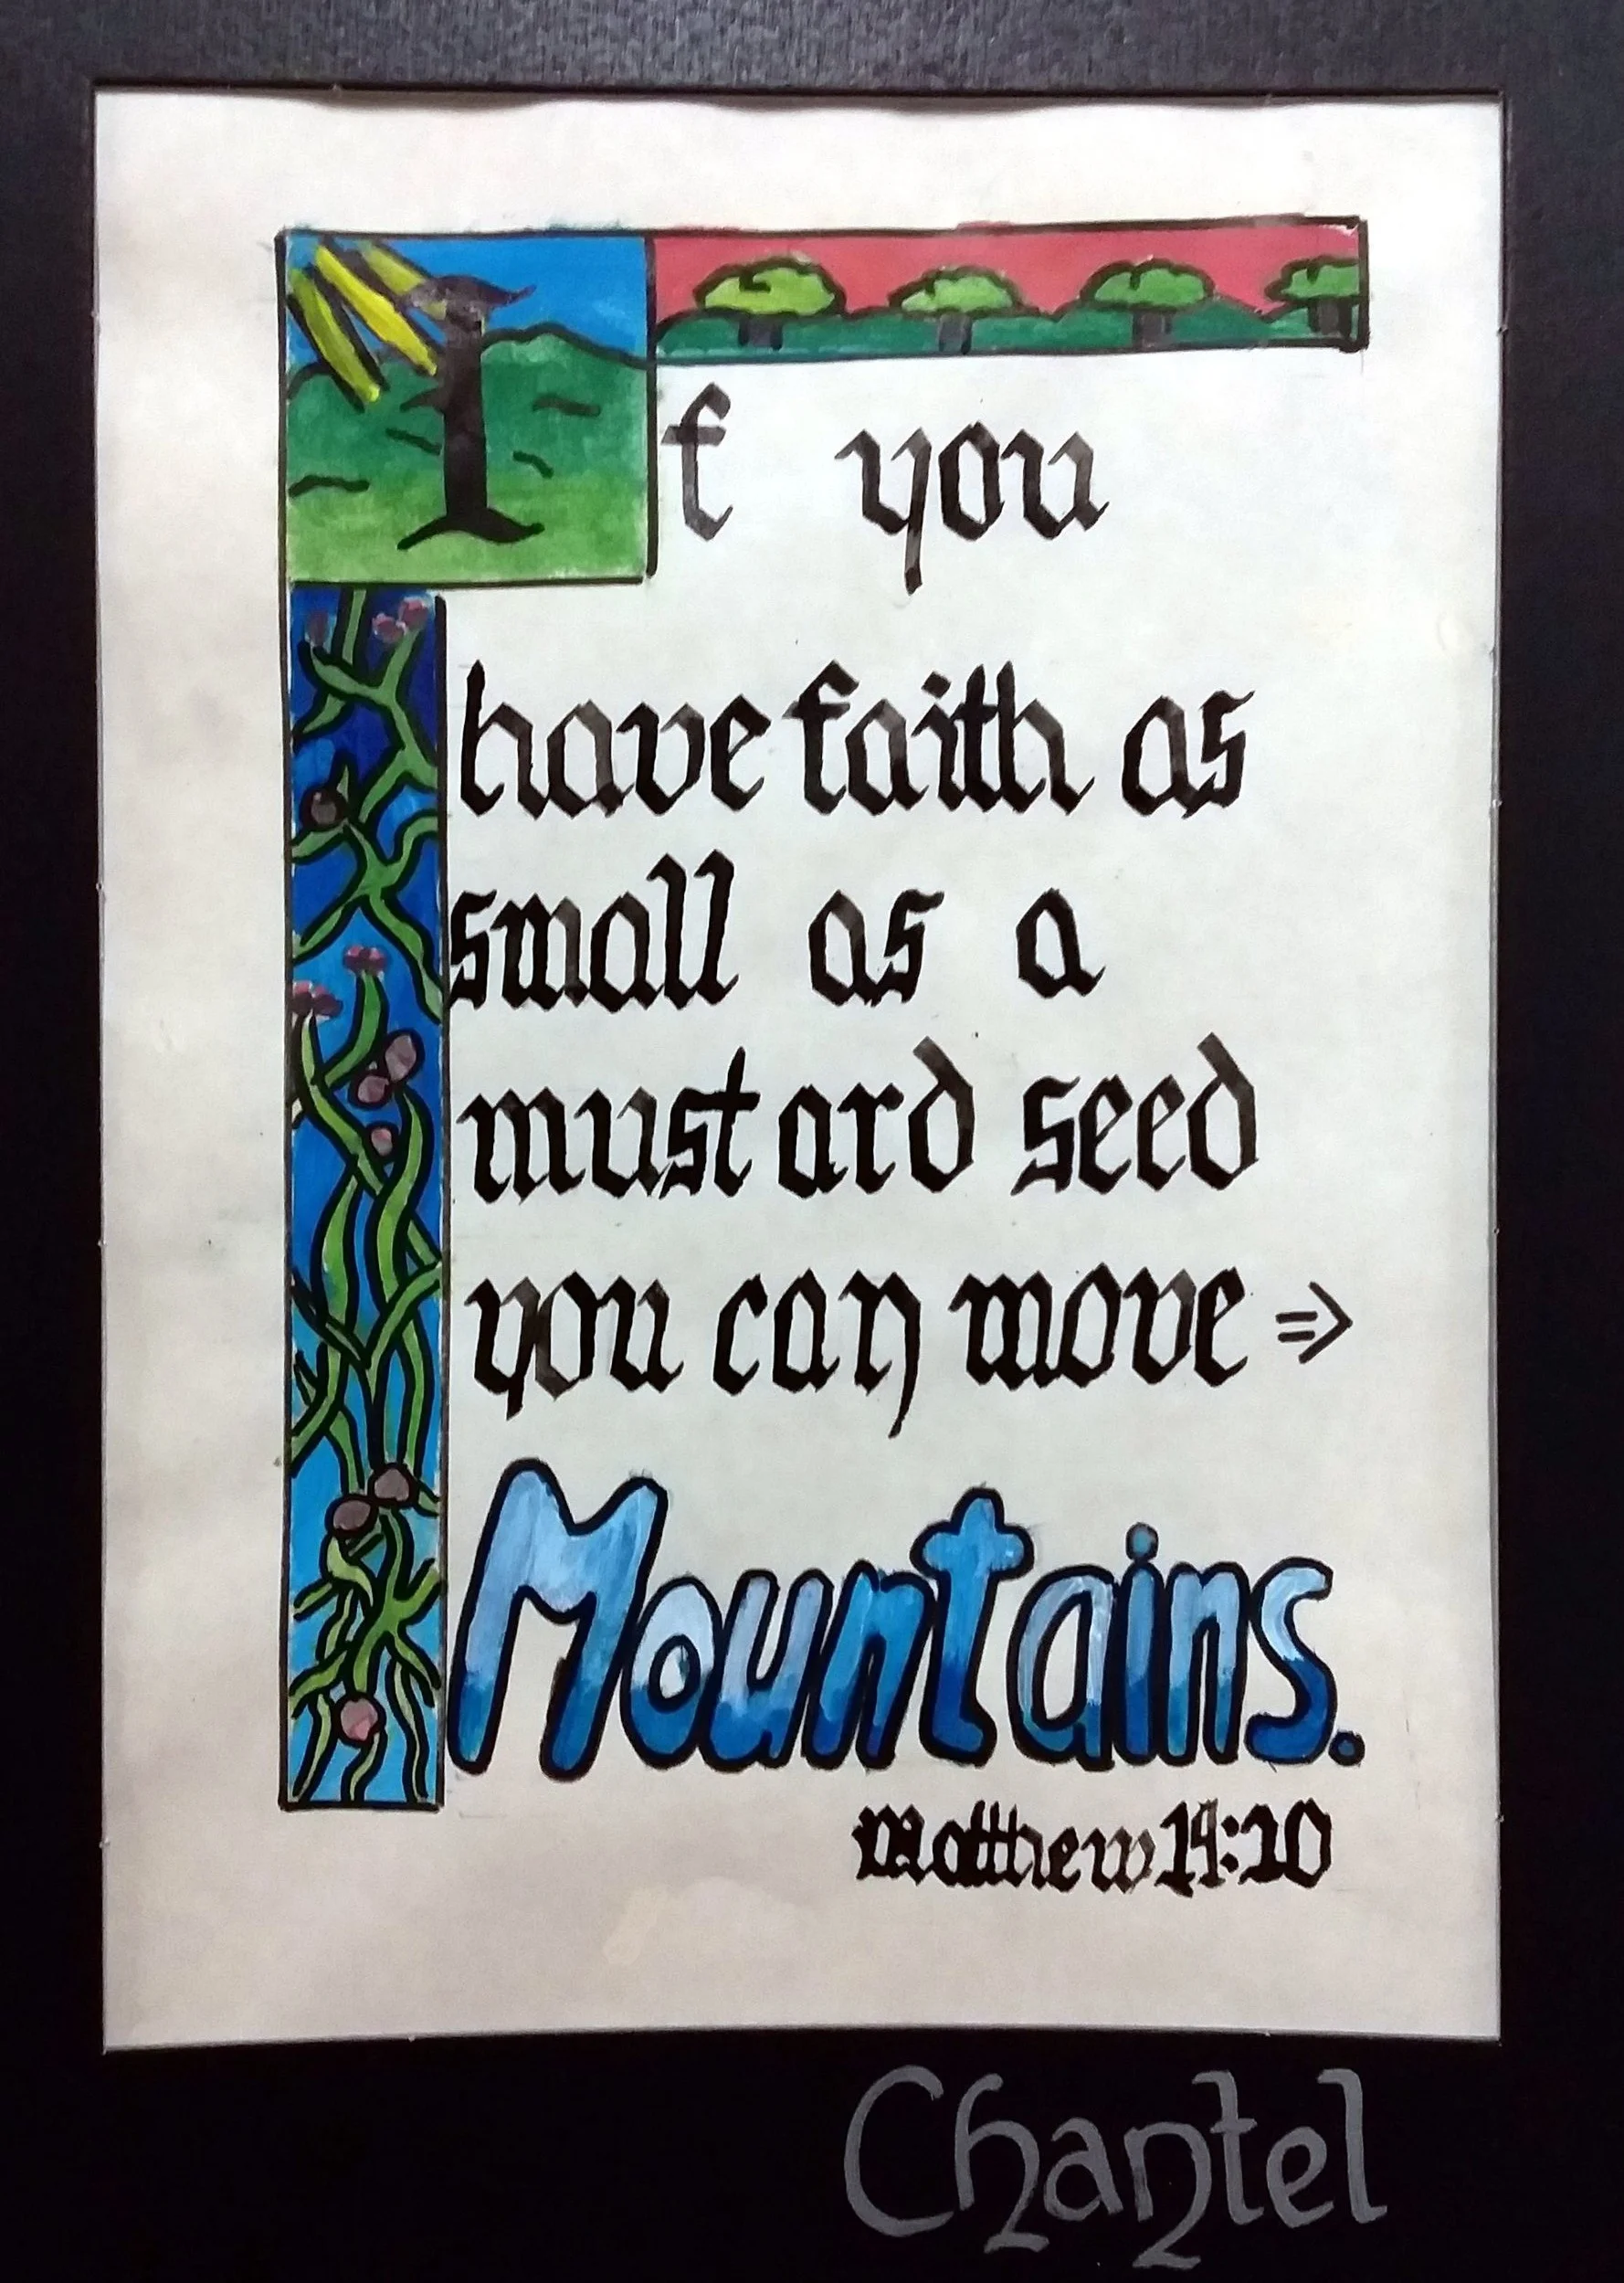 If you
have faith as
small as a
mustard seed
you can move =>
Mountains.
Matthew 14:20
Chantel